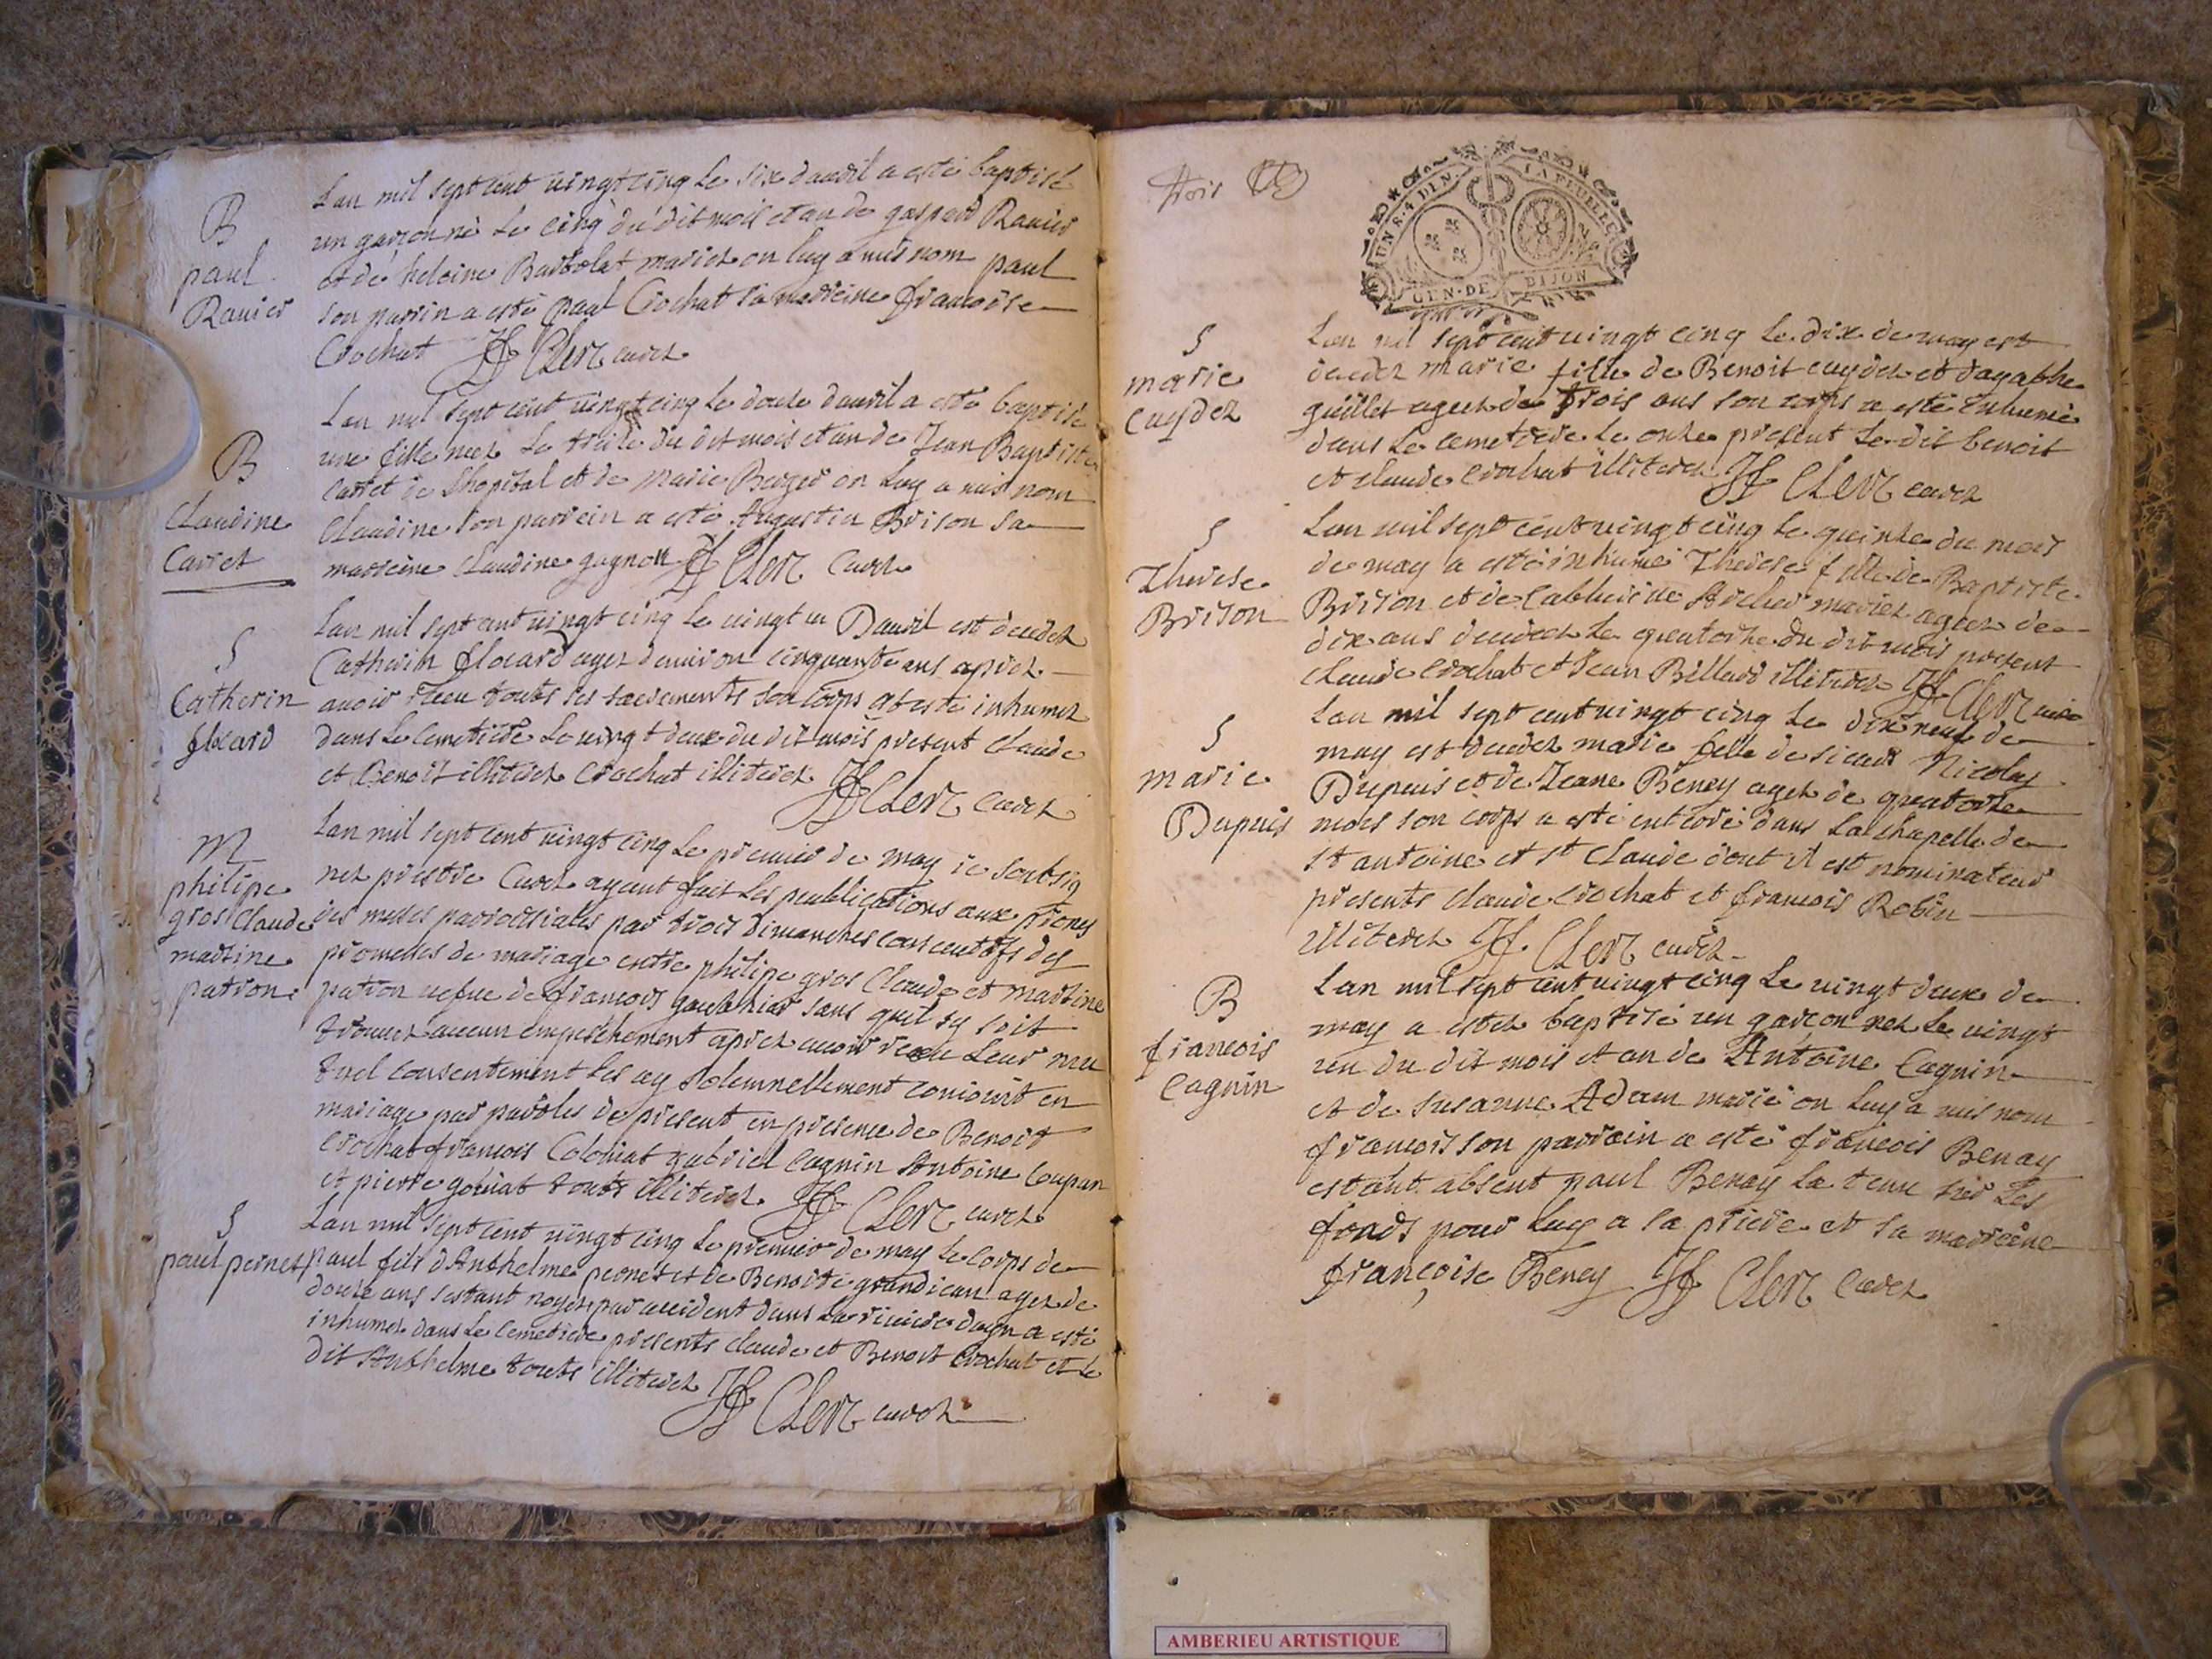 B
paul
Ravier
Lan mil sept cent vingt cinq le six davril a esté baptisé
un garçon né le cinq du dit mois et an de gaspard Ravier
et de heleine Barbolat mariez on luy a mis nom paul
son parrin a esté paul Crochat sa marreine francoise
Crochat JF Clerc curez
B
Claudine
Carret
Lan mil sept cent vingt cinq le douze davril a esté baptisé
une fille neez le dit mois et an de Jean Baptiste
Carret de Lhopital et de Marie Berger on luy a mis nom
Claudine son parrein a esté Augustin Brison sa
marreine Claudine gagnon JF Clerc Curez
S
Catherin
flocard
Lan mil sept cent vingt cinq le vingt un Davril est decedez
Catherin flocard agez denviron cinquante ans aprez
avoir receu touts ses sacrements son corps at esté inhumez
dans le Cemetiere le vingt deux du dit mois present Claude
et Benoit illiterez Crochat illiterez JF Clerc Curez
M
philipe
gros Claude
martine
patron
Lan mil sept cent vingt cinq le premier de may ie soubsig
nez prestre Curez ayant fait les publications aux prones
des messes parroissiales par trois dimanches consecutifs des
promesses de mariage entre philipe gros Claude et martine
patron vefue de francois gauthier sans quil sy soit
trouvez aucun empeschement aprez avoir receu leur mu
tuel consentement les ay solemnellement conioint en
mariage par paroles de present en presence de Benoit
Crochat francois Colomat gabriel Cagnin Antoine Coupan
et pierre goinat touts illiterez JF Clerc curez
S
paul pernet
Lan mil sept cent vingt cinq le premier de may le corps de
paul fils dAnthelme pernet et de Benoite grandiean agez de
douze ans sestant noyez par accident dans la riviere dayn a esté
inhumez dans le Cemetiere presents Claude et Benoit Crochat et le
dit Anthelme touts illiterez JF Clerc curez
trois
UN S. 4 DEN. LA FEUILLE
GEN. DE DIJON
S
marie
Cuydez
Lan mil sept cent vingt cinq le dix de may est
decedez marie fille de Benoit cuydez et dagathe
guillet ageez de trois ans son corps a esté inhumé
dans le cemetiere le onze present le dit benoit
et claude crochat illiterez JF Clerc curez
S
Therese
Brison
Lan mil sept cent vingt cinq le quinze du mois
de may a esté inhumé Therese fille de Baptiste
Brison et de Catherine Archer mariez ageez de
dix ans decedeez le quatorze du dit mois present
claude crochat et Jean Billard illiterez JF Clerc curez
S
marie
Dupuis
Lan mil sept cent vingt cinq le dix neuf de
may est decedez marie fille de sieur Nicolas
Dupuis et de Jeane Beney agez de quatorze
mois son corps a esté enterré dans la chapelle de
st antoine et st claude dont il est nominateur
presents claude crochat et francois Robin
illiterez JF Clerc curez
B
francois
Cagnin
Lan mil sept cent vingt cinq le vingt deux de
may a estez baptisé un garçon nez le vingt
un du dit mois et an de Antoine Cagnin
et de Susanne Adam marié on luy a mis nom
francois son parrain a esté francois Benay
estant absent paul Benay la tenu sur les
fonds pour luy a sa priere et sa marreine
françoise Beney JF Clerc Curez
AMBERIEU ARTISTIQUE